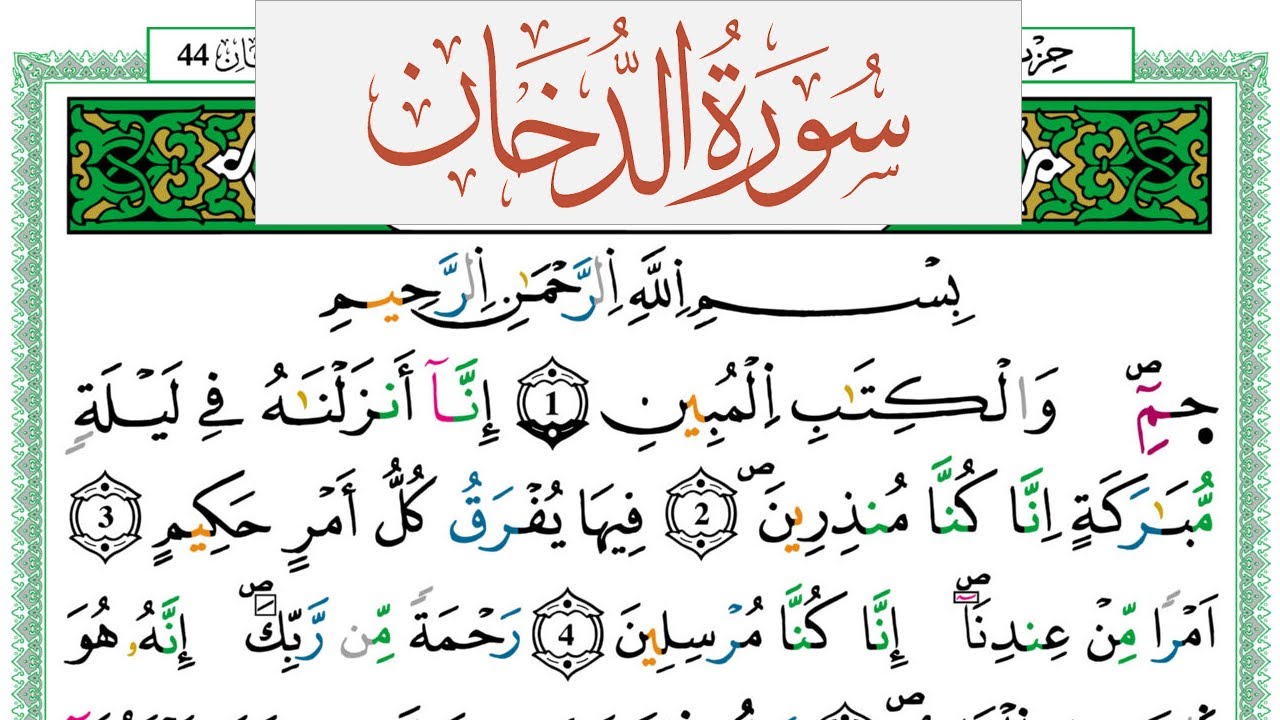 44
سُورَةُ الدُّخَانِ
بِسْمِ اِللَّهِ اِلرَّحْمَٰنِ اِلرَّحِيمِ
حمِٓۖ وَالْكِتَٰبِ اِلْمُبِينِ 1 إِنَّآ أَنزَلْنَٰهُ فِے لَيْلَةٖ
مُّبَٰرَكَةٍ اِنَّا كُنَّا مُنذِرِينَۖ 2 فِيهَا يُفْرَقُ كُلُّ أَمْرٍ حَكِيمٍ 3
اَمْرًا مِّنْ عِندِنَآۖ إِنَّا كُنَّا مُرْسِلِينَ 4 رَحْمَةً مِّن رَّبِّكَۖ إِنَّهُۥ هُوَ